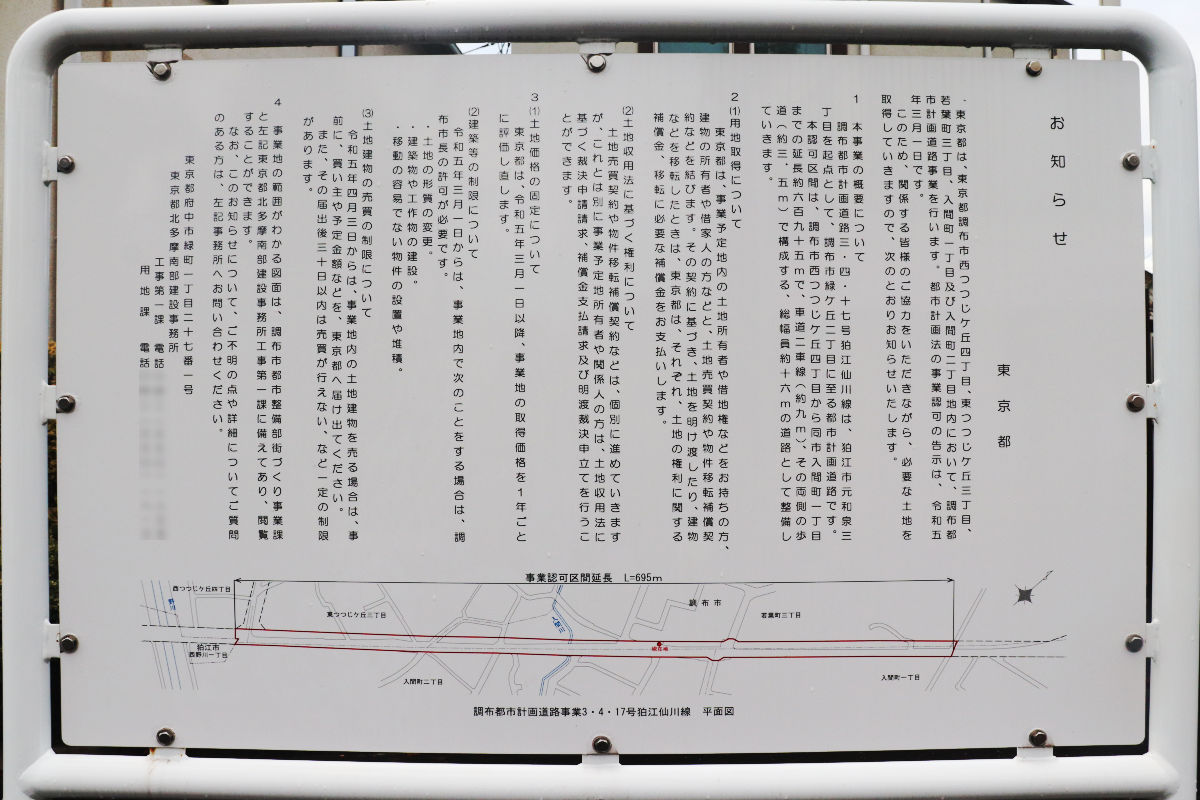 お知らせ
東京都
東京都は、東京都調布市西つつじケ丘四丁目、東つつじケ丘三丁目、
若葉町三丁目、入間町一丁目及び入間町二丁目地内において、調布都
市計画道路事業を行います。都市計画法の事業認可の告示は、令和五
年三月一日です。
このため、関係する皆様のご協力をいただきながら、必要な土地を
取得していきますので、次のとおりお知らせいたします。
1 本事業の概要について
調布都市計画道路三・四・十七号狛江仙川線は、狛江市元和泉三
丁目を起点として、調布市緑ケ丘二丁目に至る都市計画道路です。
本認可区間は、調布市西つつじケ丘四丁目から同市入間町一丁目
までの延長約六百九十五mで、車道二車線(約九m)、その両側の歩
道(約三．五m)で構成する、総幅員約十六mの道路として整備し
ていきます。
2(1)用地取得について
東京都は、事業予定地内の土地所有者や借地権などをお持ちの方、
建物の所有者や借家人の方などと、土地売買契約や物件移転補償契
約などを結びます。その契約に基づき、土地を明け渡したり、建物
などを移転したときは、東京都は、それぞれ、土地の権利に関する
補償金、移転に必要な補償金をお支払いします。
(2)土地収用法に基づく権利について
土地売買契約や物件移転補償契約などは、個別に進めていきます
が、これとは別に事業予定地所有者や関係人の方は、土地収用法に
基づく裁決申請請求、補償金支払請求及び明渡裁決申立てを行うこ
とができます。
3(1)土地価格の固定について
東京都は、令和五年三月一日以降、事業地の取得価格を1年ごと
に評価し直します。
(2)建築等の制限について
令和五年三月一日からは、事業地内で次のことをする場合は、調
布市長の許可が必要です。
・土地の形質の変更。
・建築物や工作物の建設。
・移動の容易でない物件の設置や堆積。
(3)土地建物の売買の制限について
令和五年四月三日からは、事業地内の土地建物を売る場合は、事
前に、買い主や予定金額などを、東京都へ届け出てください。
また、その届出後三十日以内は売買が行えない、など一定の制限
があります。
4 事業地の範囲がわかる図面は、調布市都市整備部街づくり事業課
と左記東京都北多摩南部建設事務所工事第一課に備えてあり、閲覧
することができます。
なお、このお知らせについて、ご不明の点や詳細についてご質問
のある方は、左記事務所へお問い合わせください。
東京都府中市緑町一丁目二十七番一号
東京都北多摩南部建設事務所
工事第一課 電話
用地課 電話
事業認可区間延長 L=695m
西つつじケ丘四丁目
野川
東つつじケ丘三丁目
入間川
調布市
若葉町三丁目
狛江市
西野川一丁目
入間町二丁目
入間町一丁目
調布都市計画道路事業3・4・17号狛江仙川線 平面図